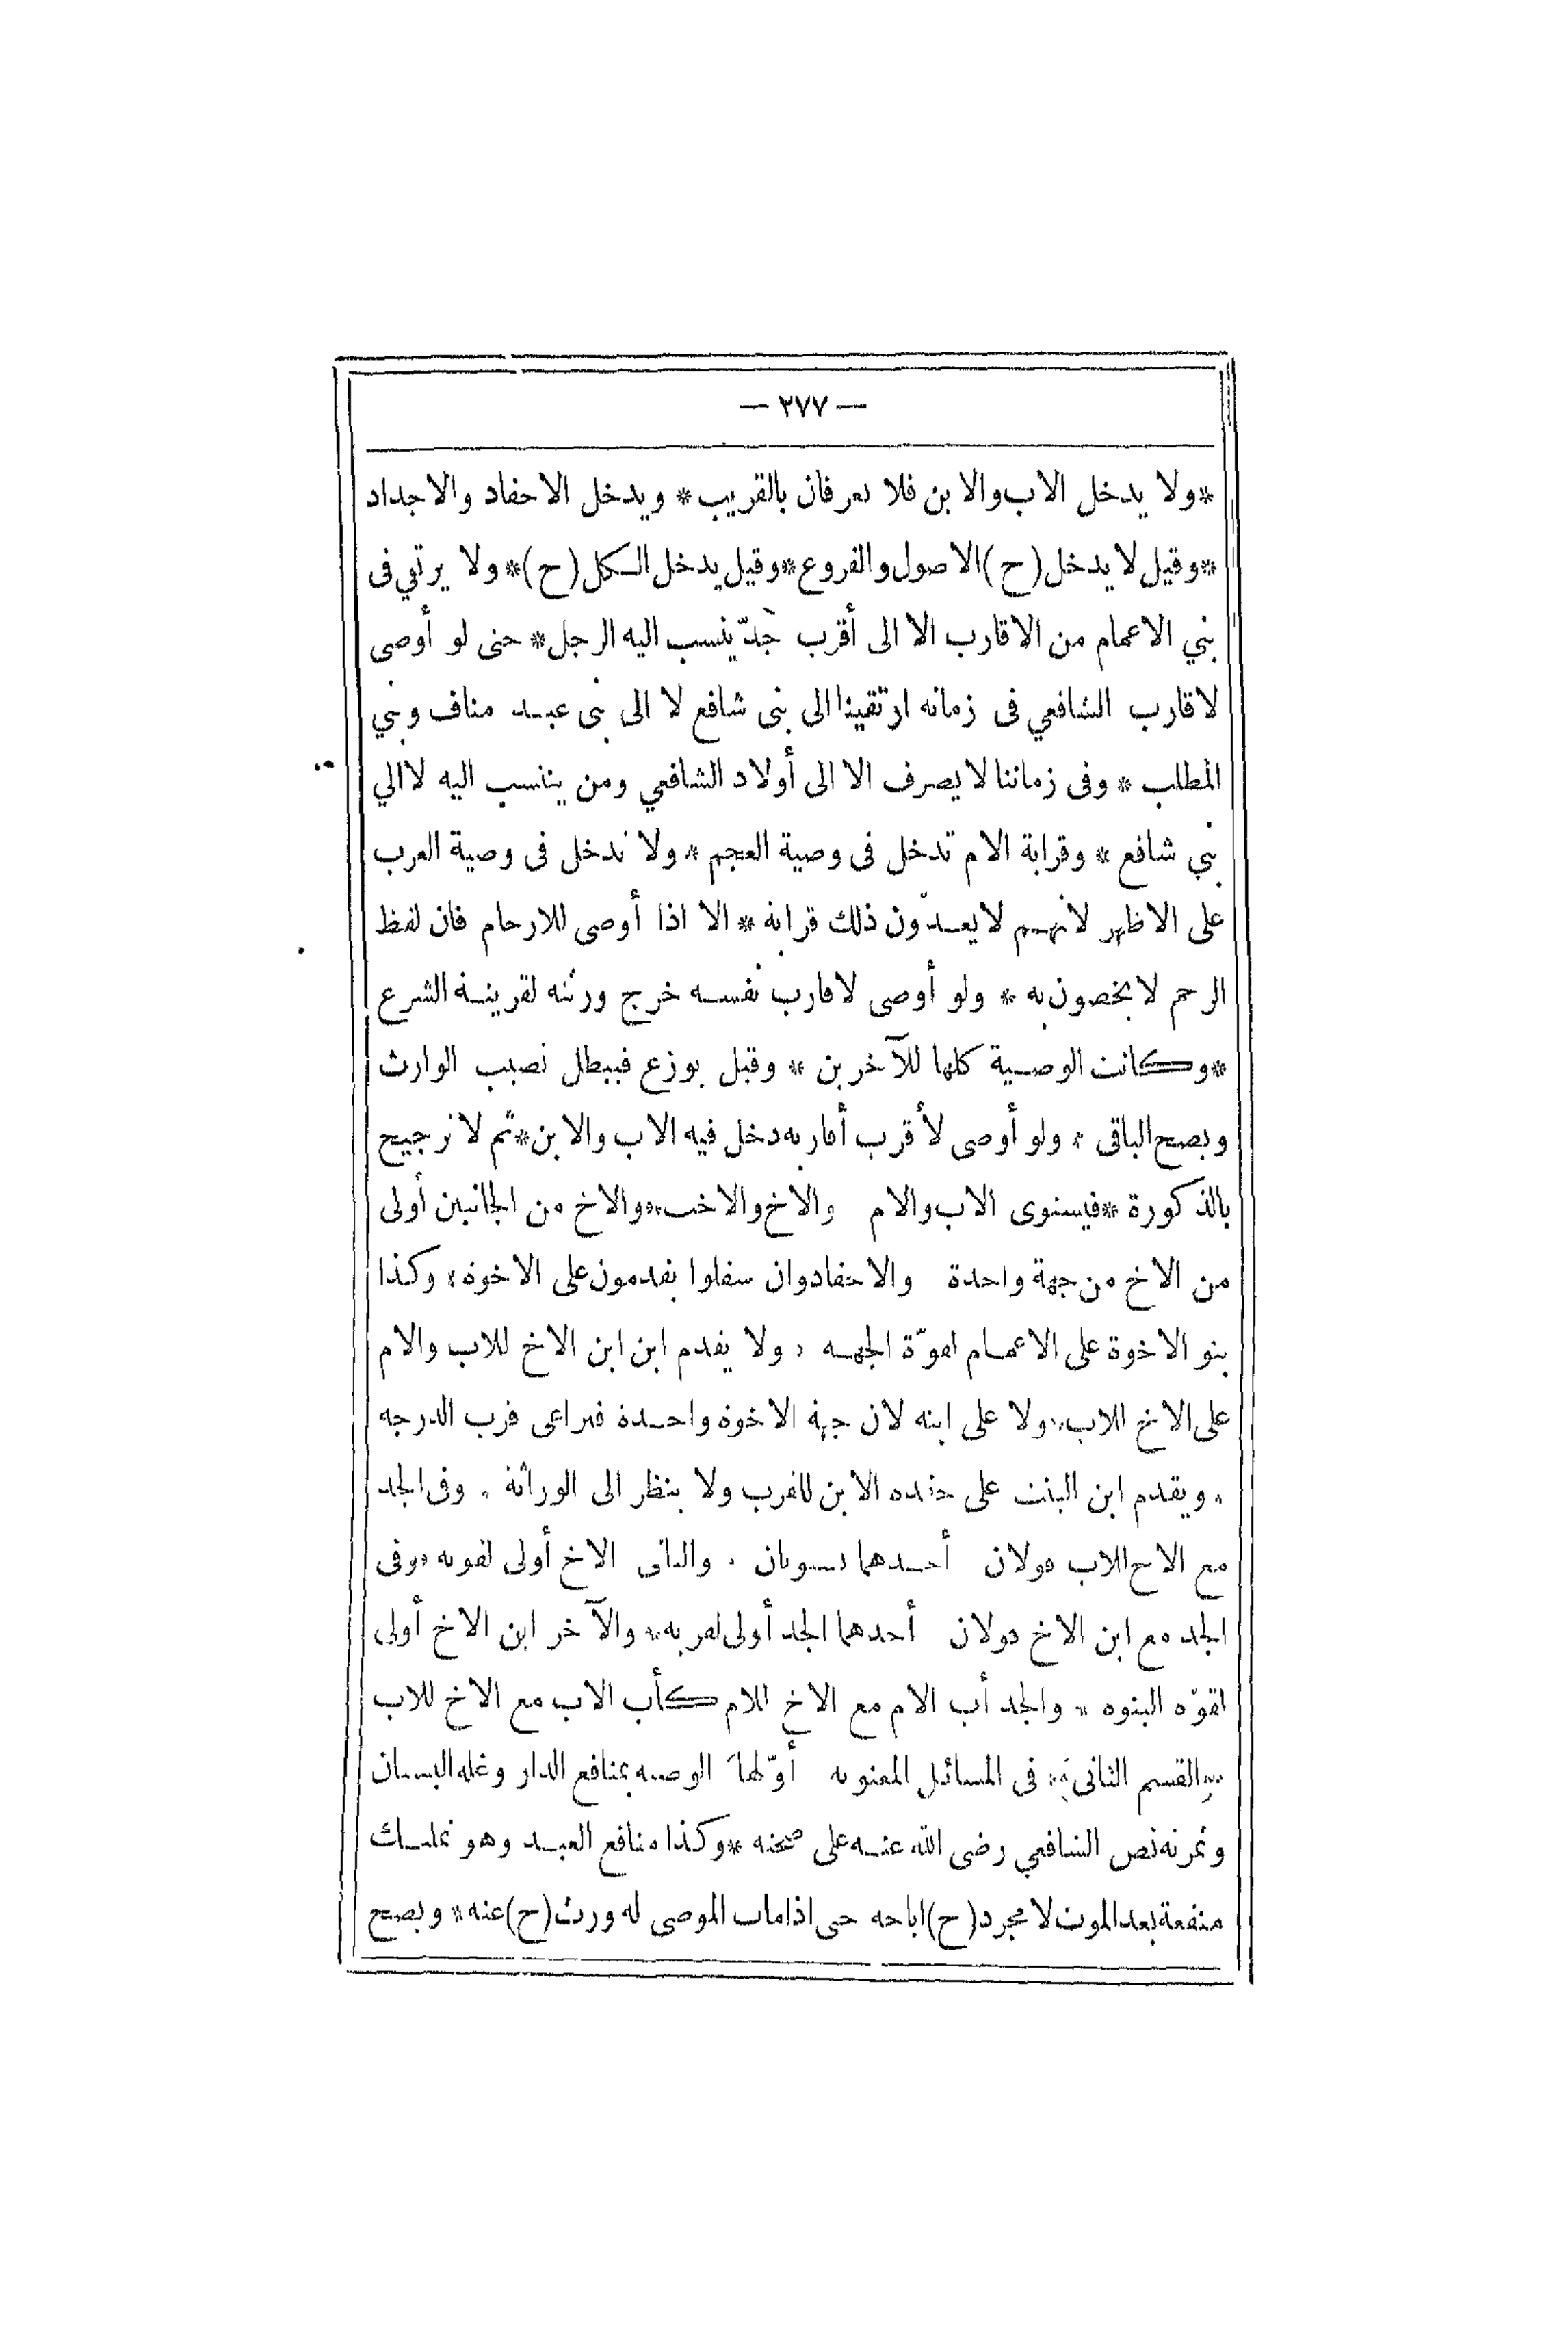 — ٢٧٧ —
*ولا يدخل الاب والابن فلا يعرفان بالقريب* ويدخل الاحفاد والاجداد
*وقيل لا يدخل (ح) الاصول والفروع*وقيل يدخل الكل (ح)* ولا يرتقي فى
بني الاعمام من الاقارب الا الى أقرب جدّ ينسب اليه الرجل* حتى لو أوصى
لاقارب الشافعي فى زمانه ارتقينا الى بنى شافع لا الى بنى عبد مناف وبني
المطلب * وفى زماننا لا يصرف الا الى أولاد الشافعي ومن ينتسب اليه لا الي
بني شافع * وقرابة الام تدخل فى وصية العجم * ولا تدخل فى وصية العرب
على الاظهر لانهم لا يعدّون ذلك قرابة * الا اذا أوصى للارحام فان لفظ
الرحم لا يخصون به * ولو أوصى لاقارب نفسه خرج ورثته لقرينة الشرع
*وكانت الوصية كلها للآخرين * وقيل يوزع فيبطل نصيب الوارث
ويصح الباقى * ولو أوصى لأقرب أقاربه دخل فيه الاب والابن*ثم لا ترجيح
بالذكورة *فيستوى الاب والام والاخ والاخت*والاخ من الجانبين أولى
من الاخ من جهة واحدة والاحفاد وان سفلوا يقدمون على الاخوة* وكذا
بنو الاخوة على الاعمام لقوّة الجهة * ولا يقدم ابن ابن الاخ للاب والام
على الاخ للاب*ولا على ابنه لان جهة الاخوة واحدة فيراعى قرب الدرجة
* ويقدم ابن البنت على حفدة الابن للقرب ولا ينظر الى الوراثة * وفى الجد
مع الاخ للاب قولان أحدهما يسويان * والثانى الاخ أولى لقوته *وفى
الجد مع ابن الاخ قولان أحدهما الجد أولى لقربه* والآخر ابن الاخ أولى
لقوّة البنوة * والجد أب الام مع الاخ للام كأب الاب مع الاخ للاب
*القسم الثانى* فى المسائل المعنوية أوّلها الوصية بمنافع الدار وغلة البستان
وثمرته نص الشافعي رضى الله عنه على صحته *وكذا منافع العبد وهو تمليك
منفعة بعد الموت لا مجرد (ح) اباحة حتى اذا مات الموصى له ورث (ح) عنه* ويصح